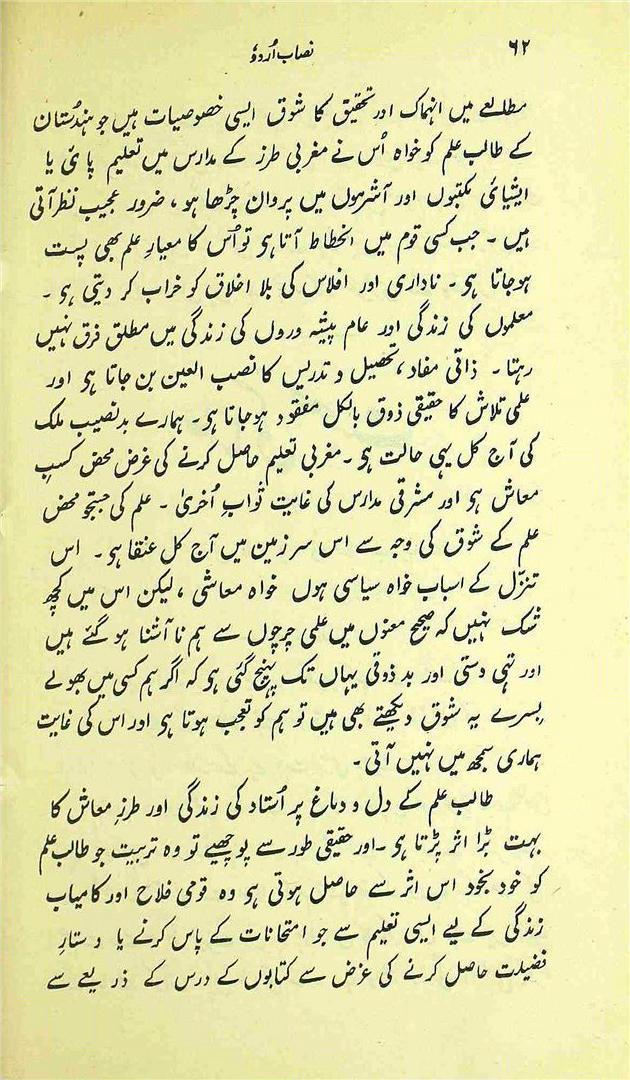 ۶۲ نصاب اُردوٗ
مطالعے میں انہماک اور تحقیق کا شوق ایسی خصوصیات ہیں جو ہندُستان
کے طالب علم کو خواہ اُس نے مغربی طرز کے مدارس میں تعلیم پائی یا
ایشیائی مکتبوں اور آشرموں میں پروان چڑھا ہو ، ضرور عجیب نظر آتی
ہیں ۔ جب کسی قوم میں انحطاط آتا ہی تو اُس کا معیارِ علم بھی پست
ہوجاتا ہی ۔ ناداری اور افلاس کی بلا اخلاق کو خراب کر دیتی ہی ۔
معلموں کی زندگی اور عام پیشہ وروں کی زندگی میں مطلق فرق نہیں
رہتا ۔ ذاتی مفاد ، تحصیل و تدریس کا نصب العین بن جاتا ہی اور
علمی تلاش کا حقیقی ذوق بالکل مفقود ہوجاتا ہی ۔ ہمارے بدنصیب ملک
کی آج کل یہی حالت ہی ۔ مغربی تعلیم حاصل کرنے کی غرض محض کسبِ
معاش ہی اور مشرقی مدارس کی غایت ثوابِ اُخریٰ ۔ علم کی جستجو محض
علم کے شوق کی وجہ سے اس سرزمین میں آج کل عنقا ہی ۔ اس
تنزّل کے اسباب خواہ سیاسی ہوں خواہ معاشی ، لیکن اس میں کچھ
شک نہیں کہ صحیح معنوں میں علمی چرچوں سے ہم ناآشنا ہو گئے ہیں
اور تہی دستی اور بد ذوقی یہاں تک پہنچ گئی ہی کہ اگر ہم کسی میں بھولے
بِسرے یہ شوق دیکھتے بھی ہیں تو ہم کو تعجب ہوتا ہی اور اس کی غایت
ہماری سمجھ میں نہیں آتی ۔
طالب علم کے دل و دماغ پر اُستاد کی زندگی اور طرزِ معاش کا
بہت بڑا اثر پڑتا ہی ۔ اور حقیقی طور سے پوچھیے تو وہ تربیت جو طالب علم
کو خود بخود اس اثر سے حاصل ہوتی ہی وہ قومی فلاح اور کامیاب
زندگی کے لیے ایسی تعلیم سے جو امتحانات کے پاس کرنے یا دستارِ
فضیلت حاصل کرنے کی غرض سے کتابوں کے درس کے ذریعے سے